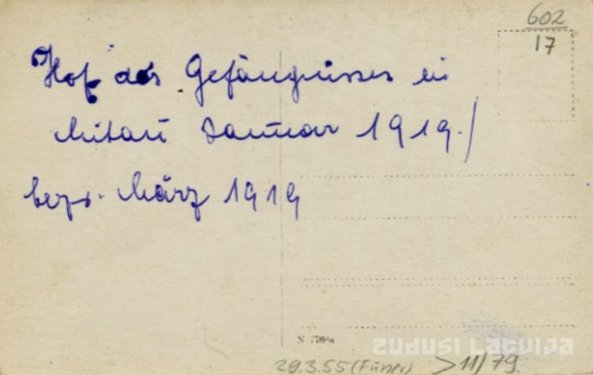 602
17
Hof des Gefängnisses in
Mitau Januar 1919./
bezw. März 1919
29.3.55 (Füner) > 11/79.
zudusi latvija